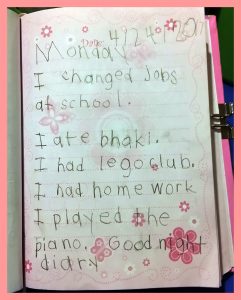 Monday Date: 4/24/2017
I changed jobs
at school.
I ate bhaki.
I had lego club.
I had home work
I played the
piano. Good night
diary